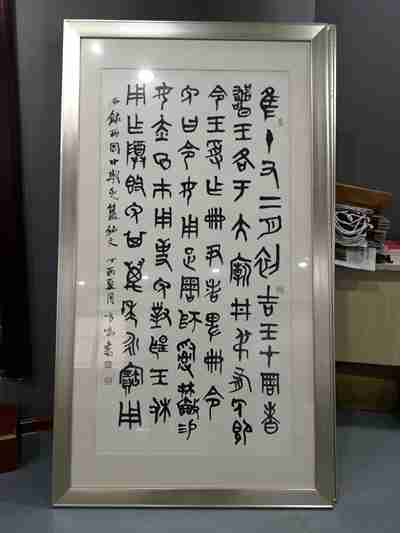 隹十又二月初吉王才周昧
爽王各于大廟井弔又免即
令王受乍冊尹者卑冊令
免曰令女足周師𤔲易
女赤巿用事免對揚王休
用乍尊簋免其萬年永寶用
右錄西周中期免簋銘文 丁酉夏月 書